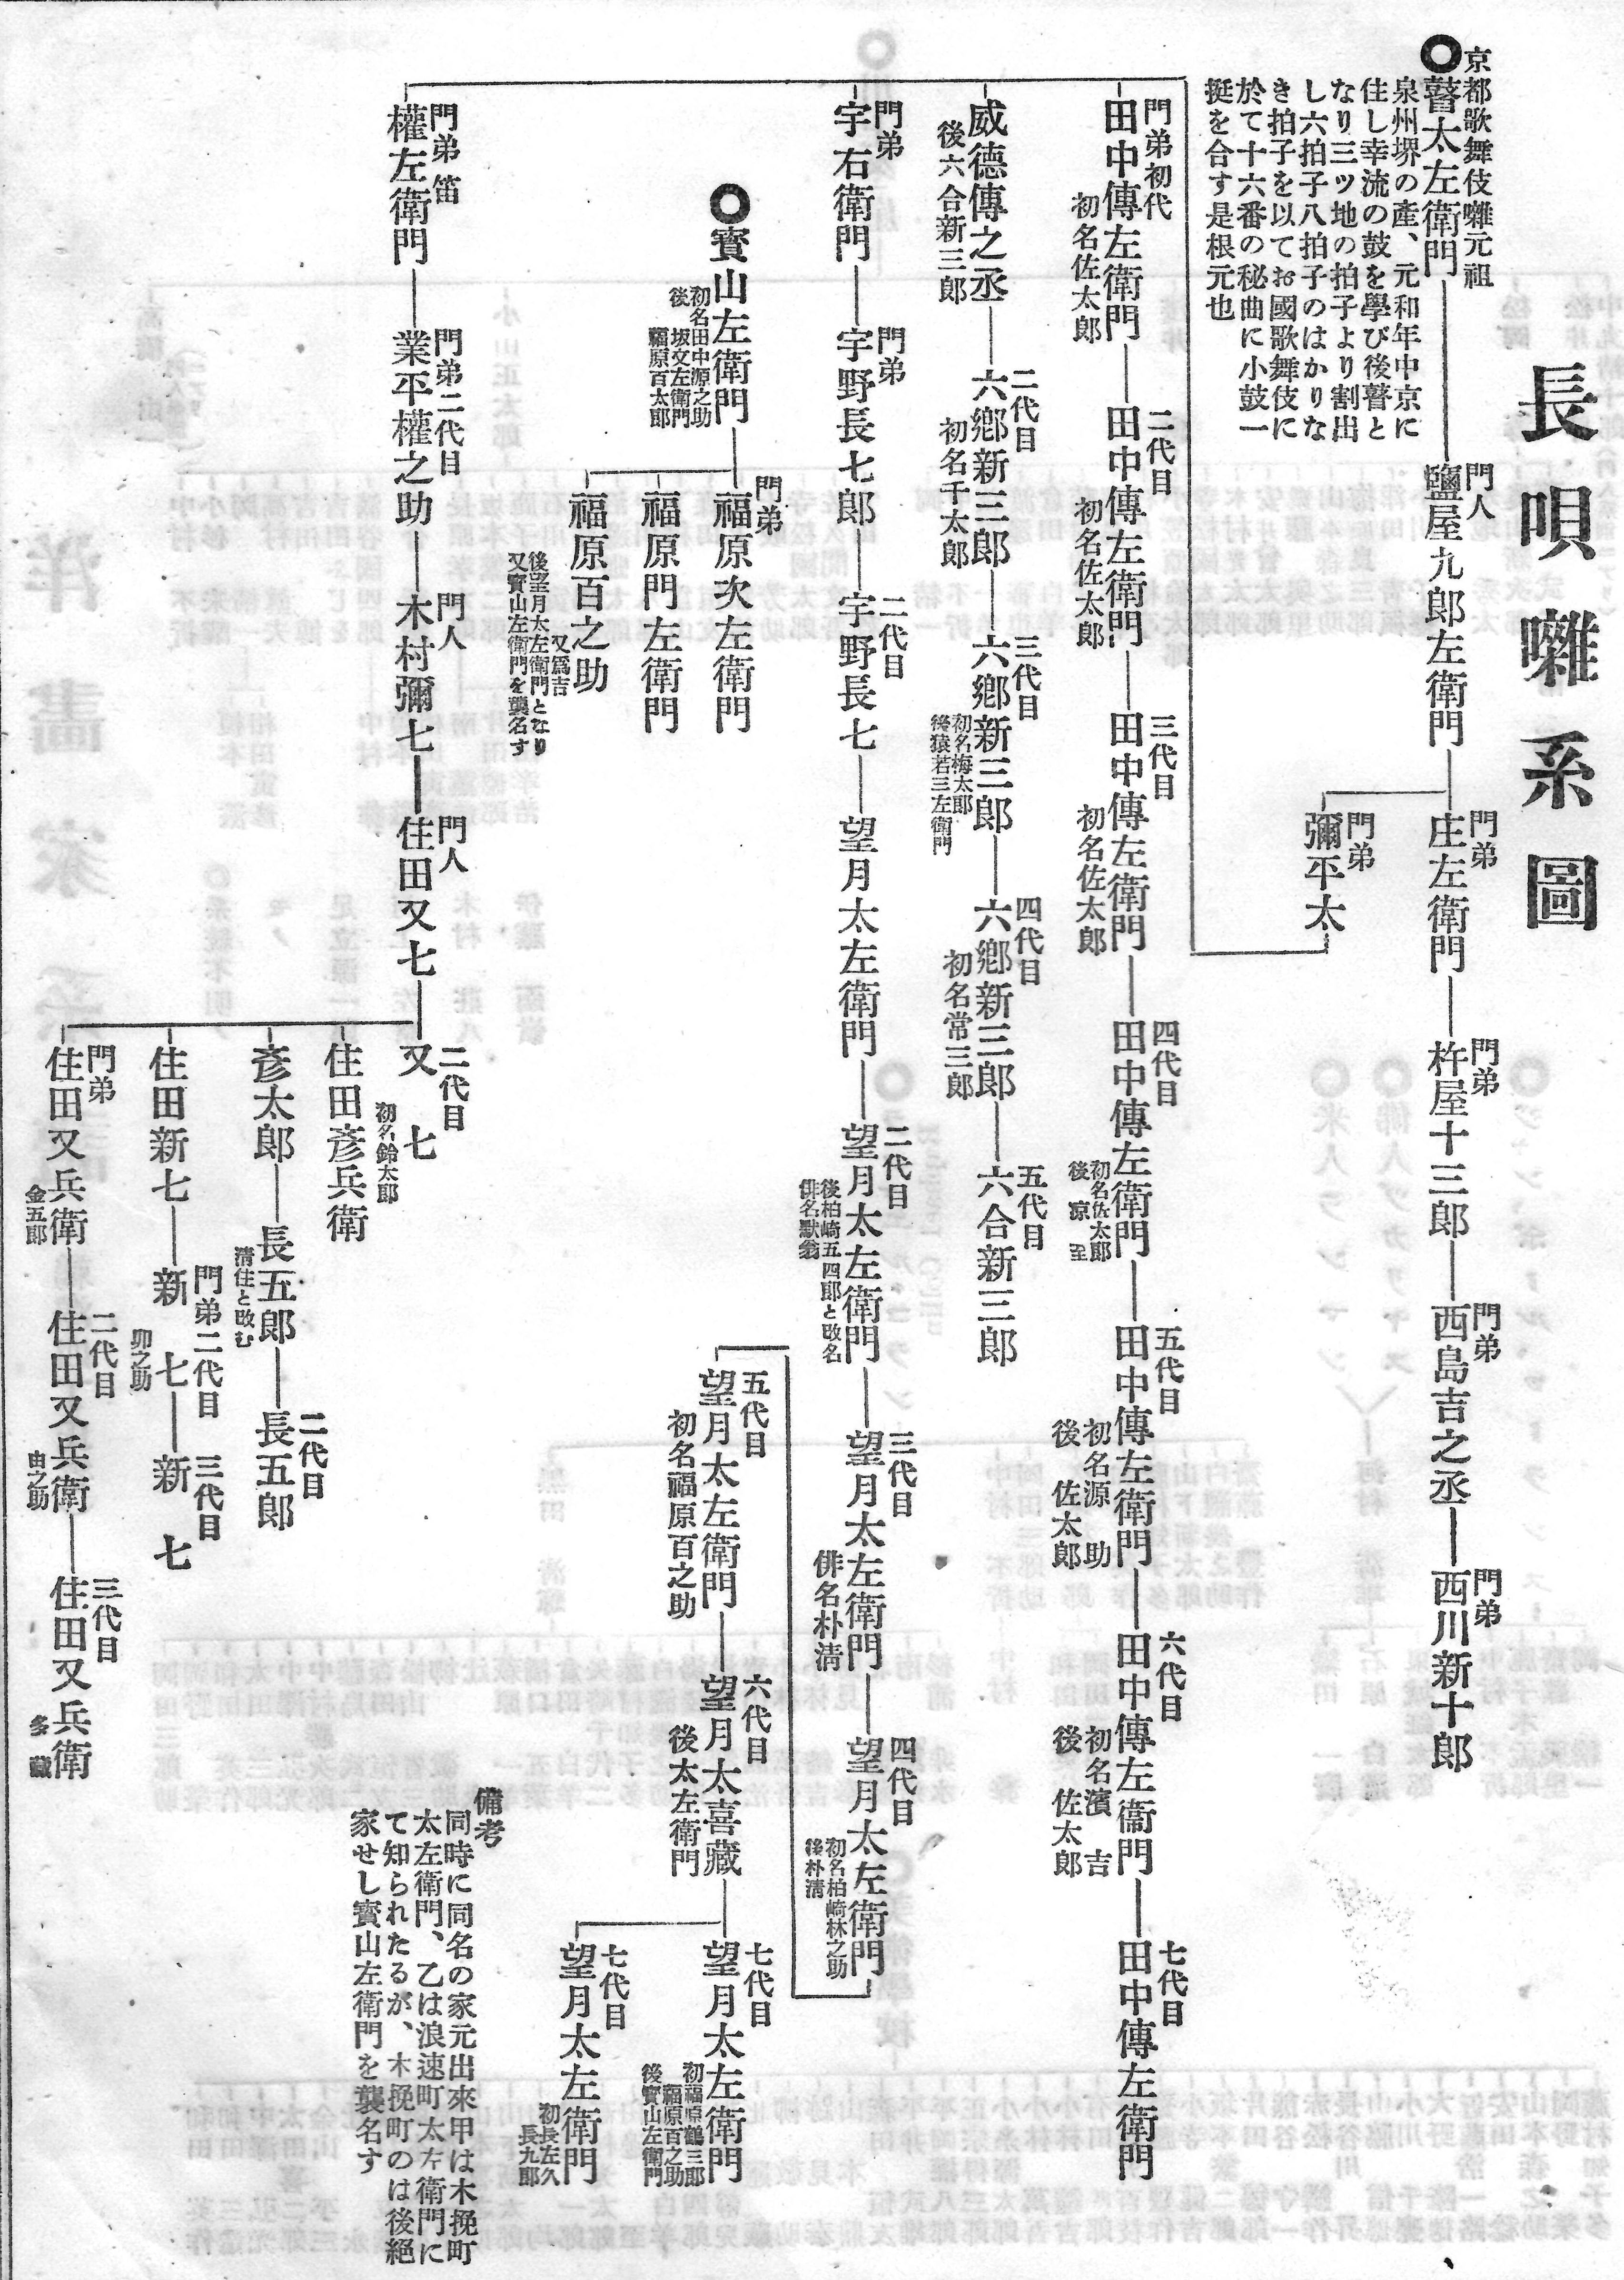 長唄囃系圖
京都歌舞伎囃元祖
瞽太左衛門
泉州堺の產、元和年中京に
住し幸流の鼓を學び後瞽と
なり三ツ地の拍子より割出
し六拍子八拍子のはかりな
き拍子を以てお國歌舞伎に
於て十六番の秘曲に小鼓一
挺を合す是根元也
門人
鹽屋九郎左衛門
門弟
庄左衛門
門弟
杵屋十三郎
門弟
西島吉之丞
門弟
西川新十郎
門弟
彌平太
門弟初代
田中傳左衛門
初名佐太郎
二代目
田中傳左衛門
初名佐太郎
三代目
田中傳左衛門
初名佐太郎
四代目
田中傳左衛門
初名佐太郎
後凉至
五代目
田中傳左衛門
初名源助
後佐太郎
六代目
田中傳左衛門
初名濱吉
後佐太郎
七代目
田中傳左衛門
威德傳之丞
後六合新三郎
二代目
六鄕新三郎
初名千太郎
三代目
六鄕新三郎
初名梅太郎
後猿若三左衛門
四代目
六鄕新三郎
初名常三郎
五代目
六合新三郎
門弟
宇右衛門
門弟
宇野長七郎
二代目
宇野長七
望月太左衛門
二代目
望月太左衛門
後柏崎五四郎と改名
俳名默翁
三代目
望月太左衛門
俳名朴淸
四代目
望月太左衛門
初名柏崎林之助
後朴淸
五代目
望月太左衛門
初名福原百之助
六代目
望月太喜藏
後太左衛門
七代目
望月太左衛門
初福原鶴三郎
福原百之助
後寳山左衛門
七代目
望月太左衛門
初長左久
長九郎
寳山左衛門
初名田中源之助
後坂文左衛門
福原百太郎
門弟
福原次左衛門
福原門左衛門
福原百之助
又爲吉
後望月太左衛門となり
又寳山左衛門を襲名す
門弟笛
權左衛門
門弟二代目
業平權之助
門人
木村彌七
門人
住田又七
二代目
又七
初名鈴太郎
住田彥兵衛
彥太郎
長五郎
淸住と改む
二代目
長五郎
住田新七
門弟二代目
新七
卯之助
三代目
新七
門弟
住田又兵衛
金五郎
二代目
住田又兵衛
由之助
三代目
住田又兵衛
多藏
備考
同時に同名の家元出來甲は木挽町
太左衛門、乙は浪速町太左衛門に
て知られたるが、木挽町のは後絕
家せし寳山左衛門を襲名す